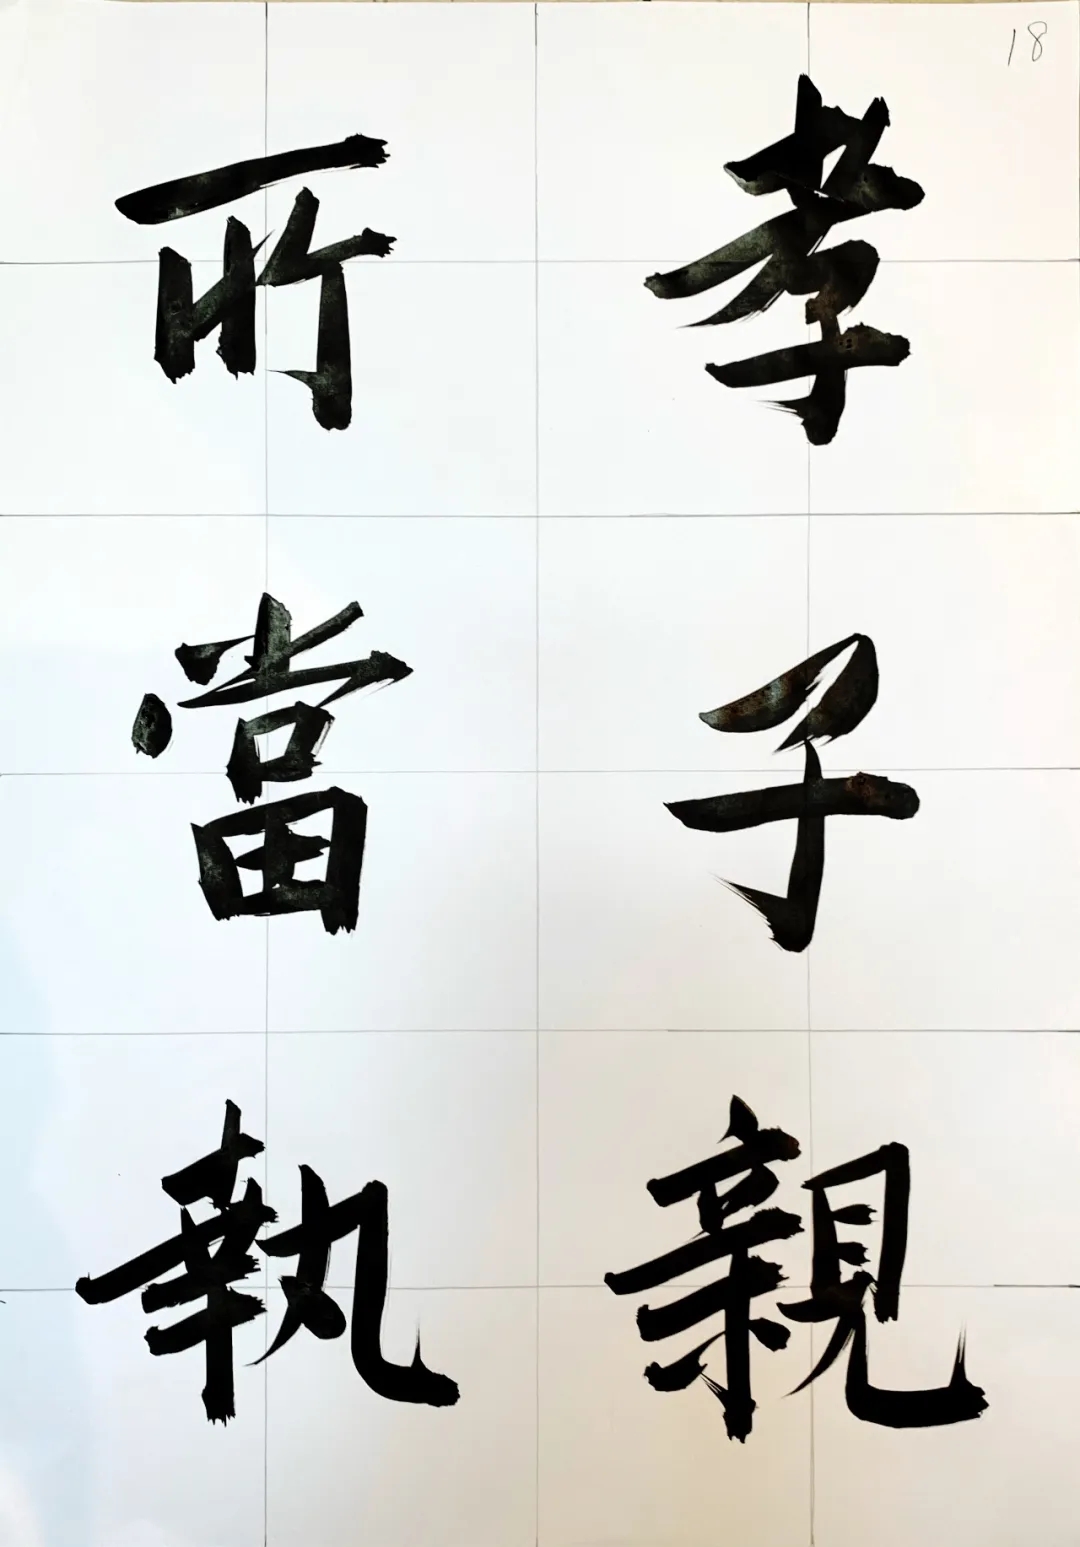 18
孝子親
所當執